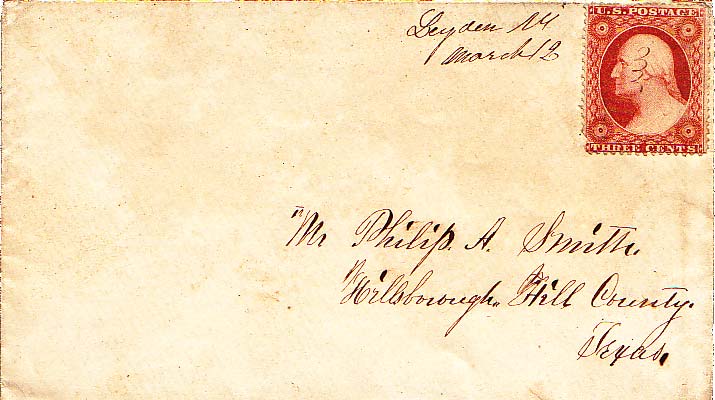 Leyden
March 12
U.S. POSTAGE
3
THREE CENTS
Mr Philip. A. Smith.
Hillsborough. Hill County.
Texas.